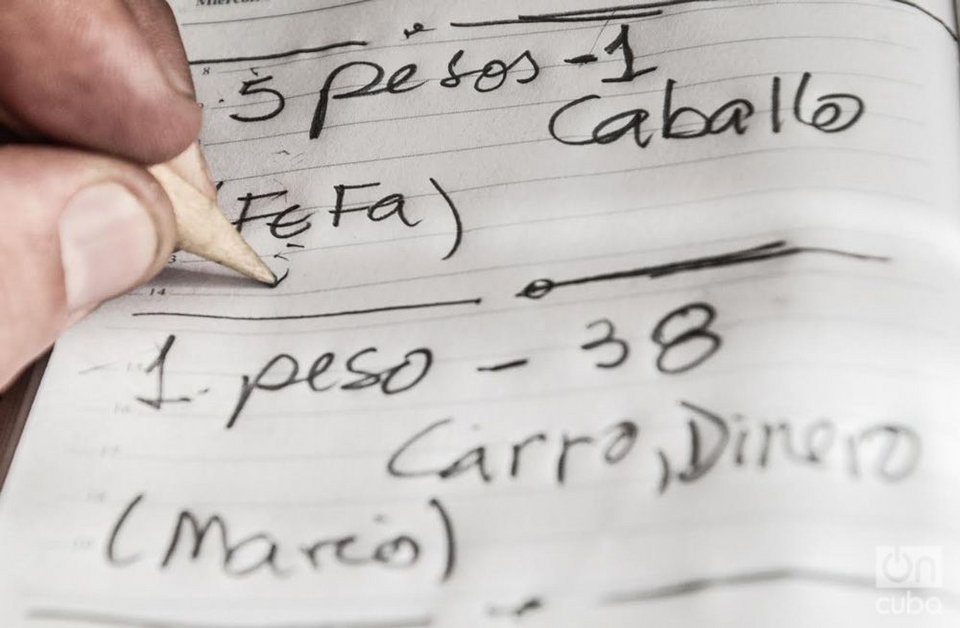 5 pesos - 1
Caballo
(FeFa)
1. peso - 38
Carro, Dinero
(Marcos)
On
cuba